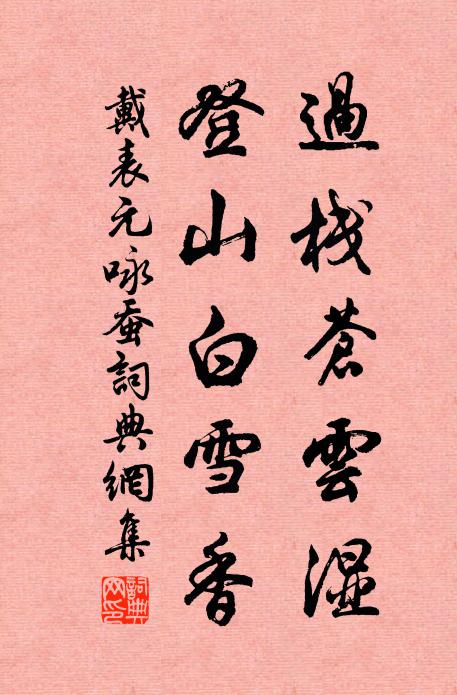 過栈蒼雲湿
登山白雪香
戴表元咏蚕詞典網集
詞典网印